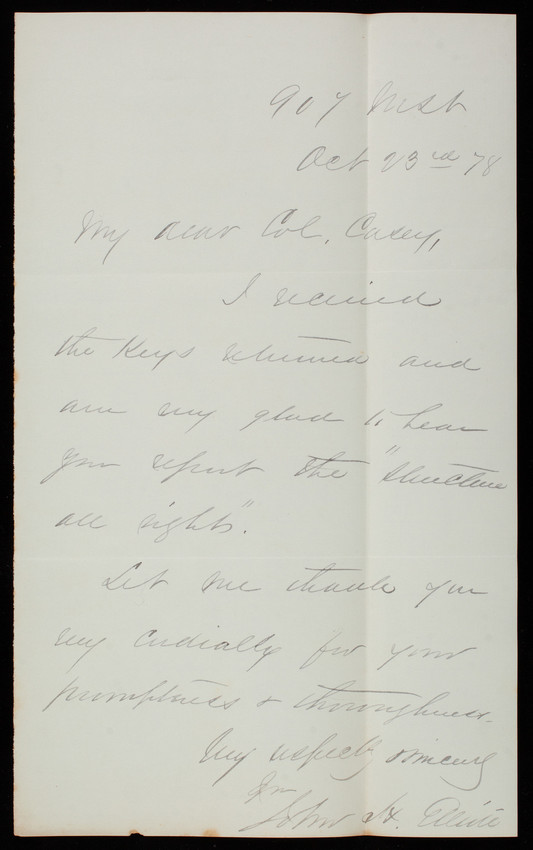 907 M St
Oct 23rd 78
My dear Col. Casey,
I received
the Keys returned and
am very glad to hear
you report the "structure
all right".
Let me thank you
very cordially for your
promptness & thoroughness.
Very respectfy & sincerely
Yrs
John H.